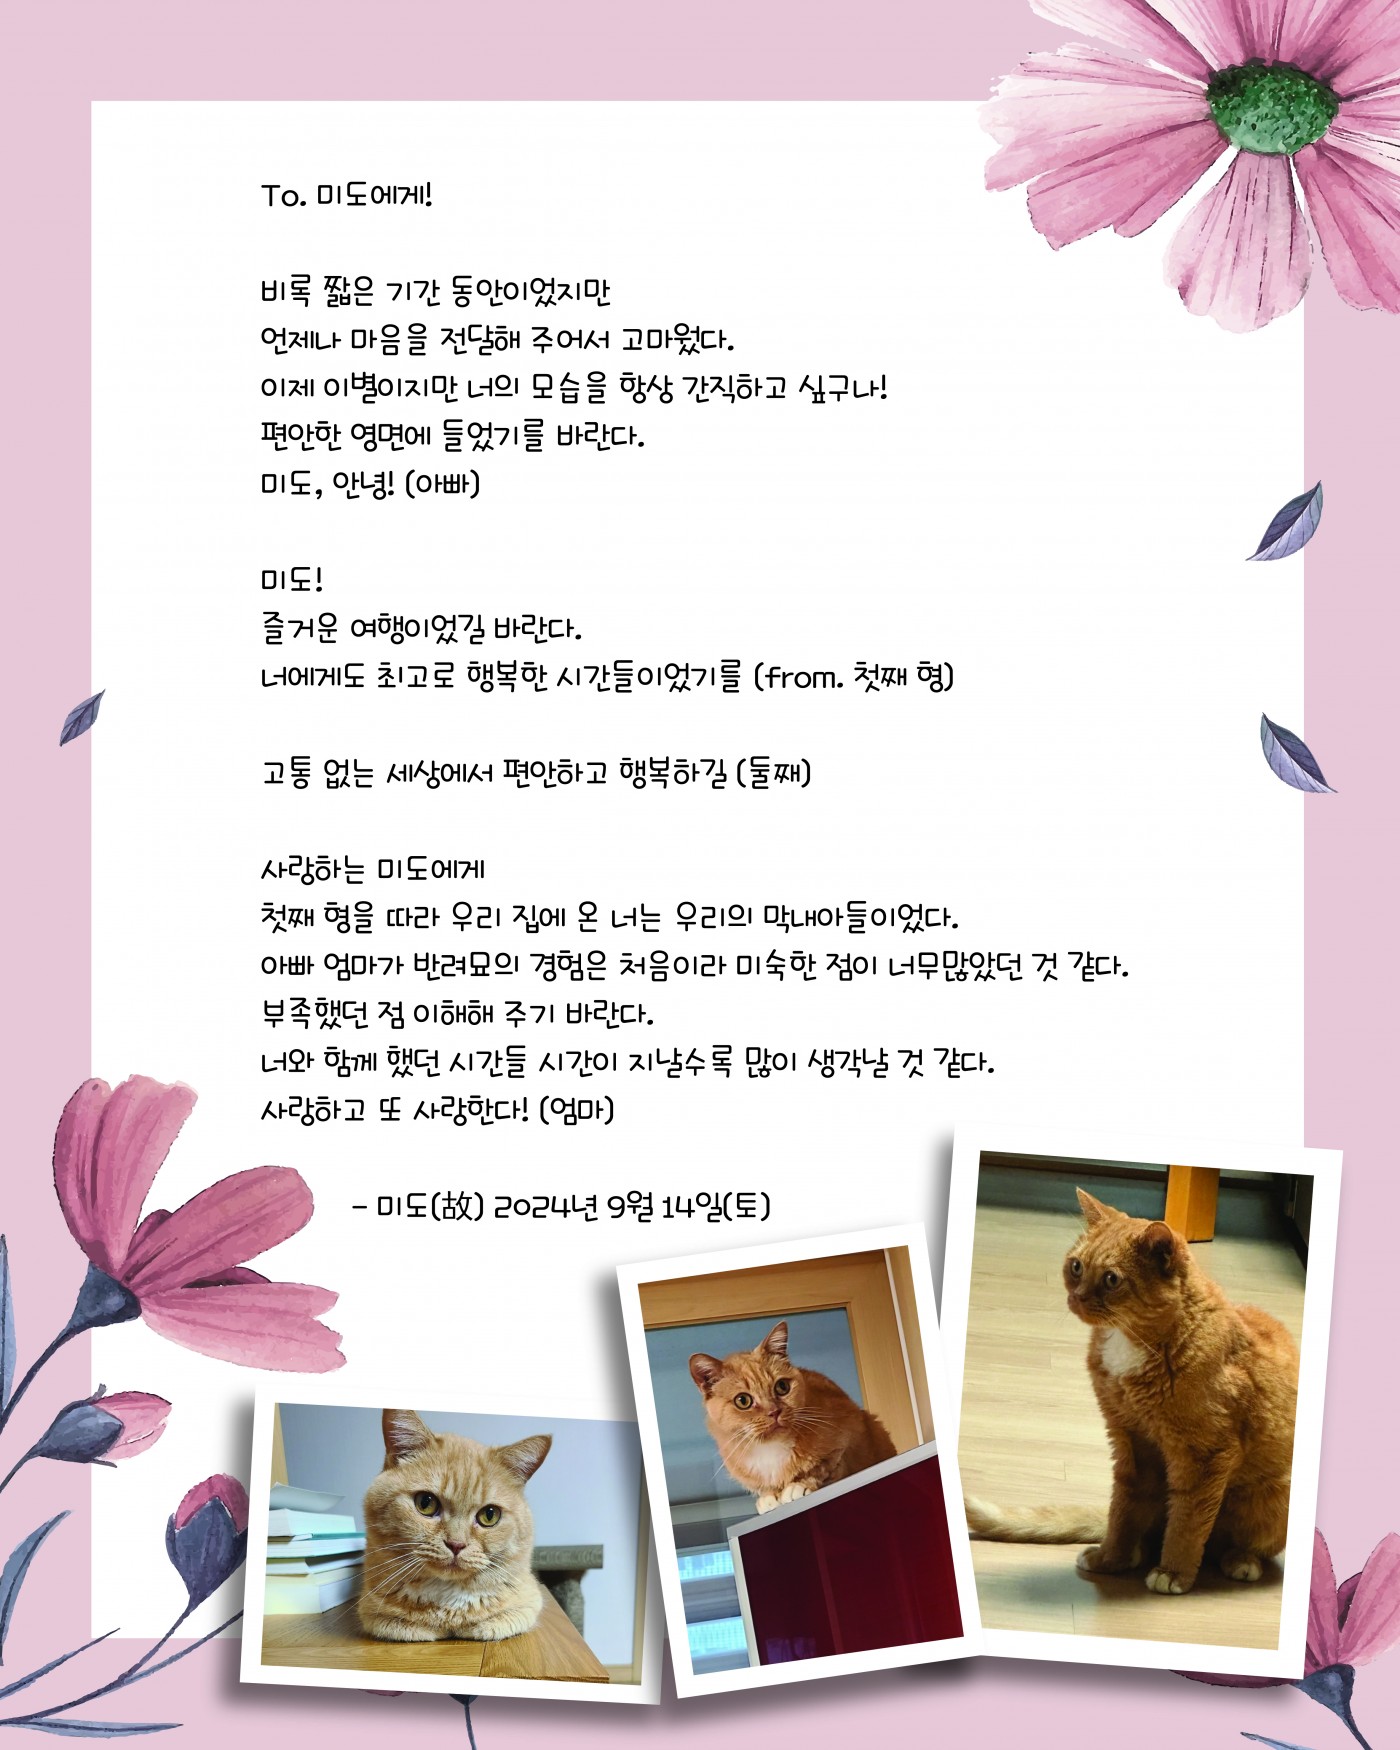 To. 미도에게!
비록 짧은 기간 동안이었지만
언제나 마음을 전달해 주어서 고마웠다.
이제 이별이지만 너의 모습을 항상 간직하고 싶구나!
편안한 영면에 들었기를 바란다.
미도, 안녕! (아빠)
미도!
즐거운 여행이었길 바란다.
너에게도 최고로 행복한 시간들이었기를 (from. 첫째 형)
고통 없는 세상에서 편안하고 행복하길 (둘째)
사랑하는 미도에게
첫째 형을 따라 우리 집에 온 너는 우리의 막내아들이었다.
아빠 엄마가 반려묘의 경험은 처음이라 미숙한 점이 너무많았던 것 같다.
부족했던 점 이해해 주기 바란다.
너와 함께 했던 시간들 시간이 지날수록 많이 생각날 것 같다.
사랑하고 또 사랑한다! (엄마)
- 미도(故) 2024년 9월 14일(토)